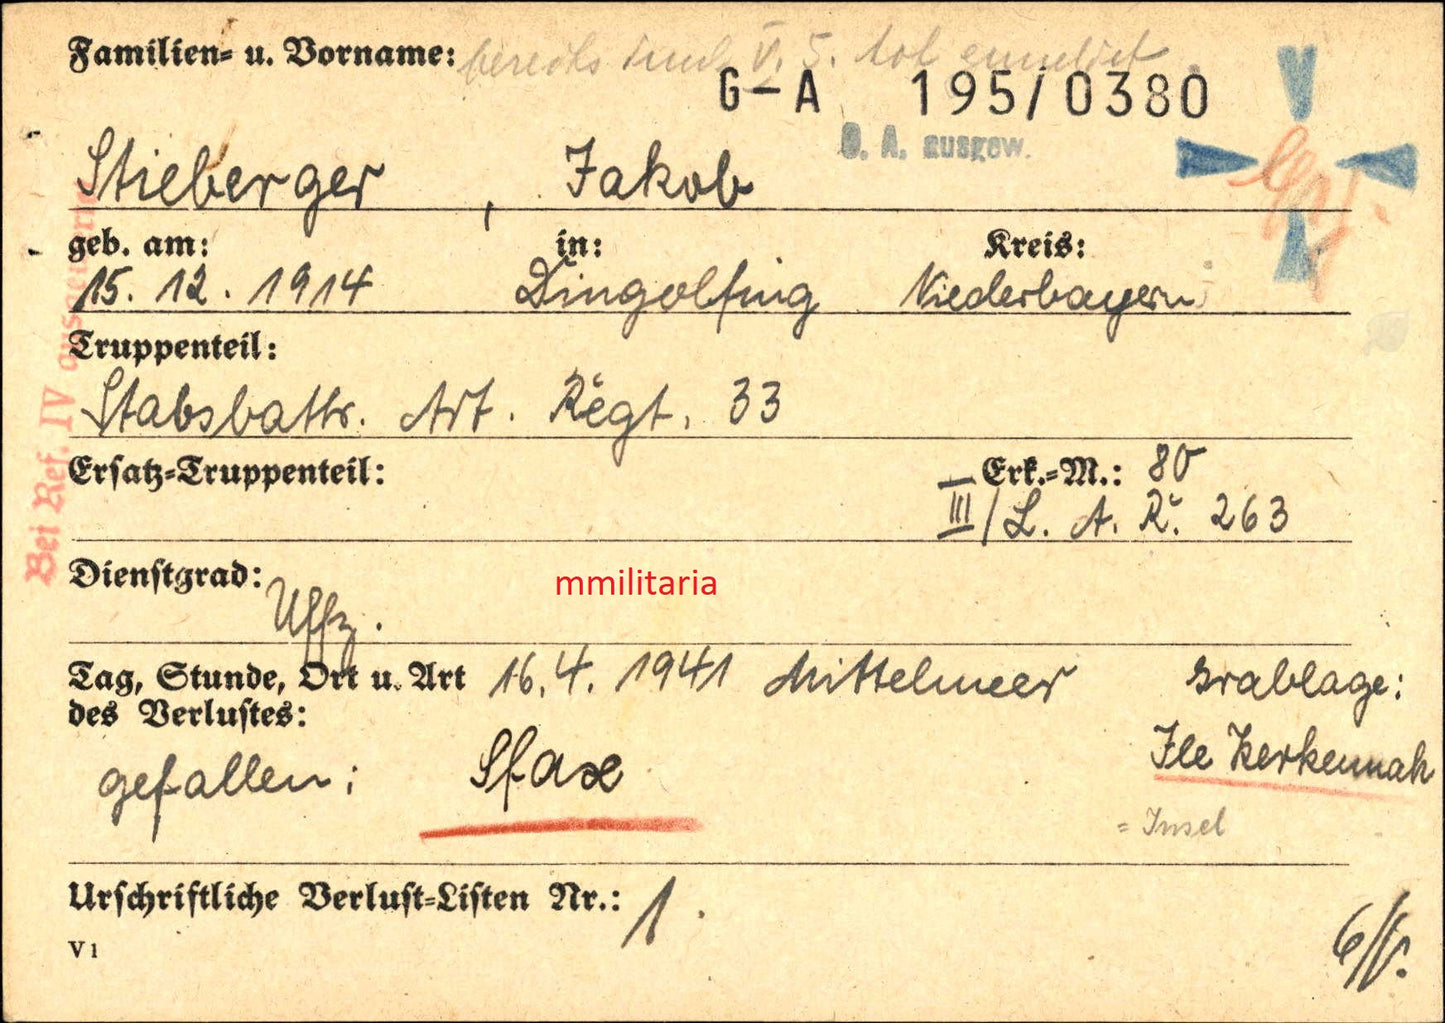 Familien= u. Vorname: bereits durch V. 5. tot gemeldet
G-A 195/0380
G. A. ausgew.
Stieberger, Jakob
geb. am: in: Kreis:
15. 12. 1914 Dingolfing Niederbayern
Truppenteil:
Stabsbattr. Art. Regt. 33
Ersatz=Truppenteil: Erk.=M.: 80
III/L. A. R. 263
Dienstgrad:
Uffz.
mmilitaria
Tag, Stunde, Ort u. Art 16.4.1941 Mittelmeer Grablage:
des Verlustes:
gefallen; Sfax Ile Kerkennah
= Insel
Urschriftliche Verlust=Listen Nr.: 1.
V 1
Bei Ref. IV